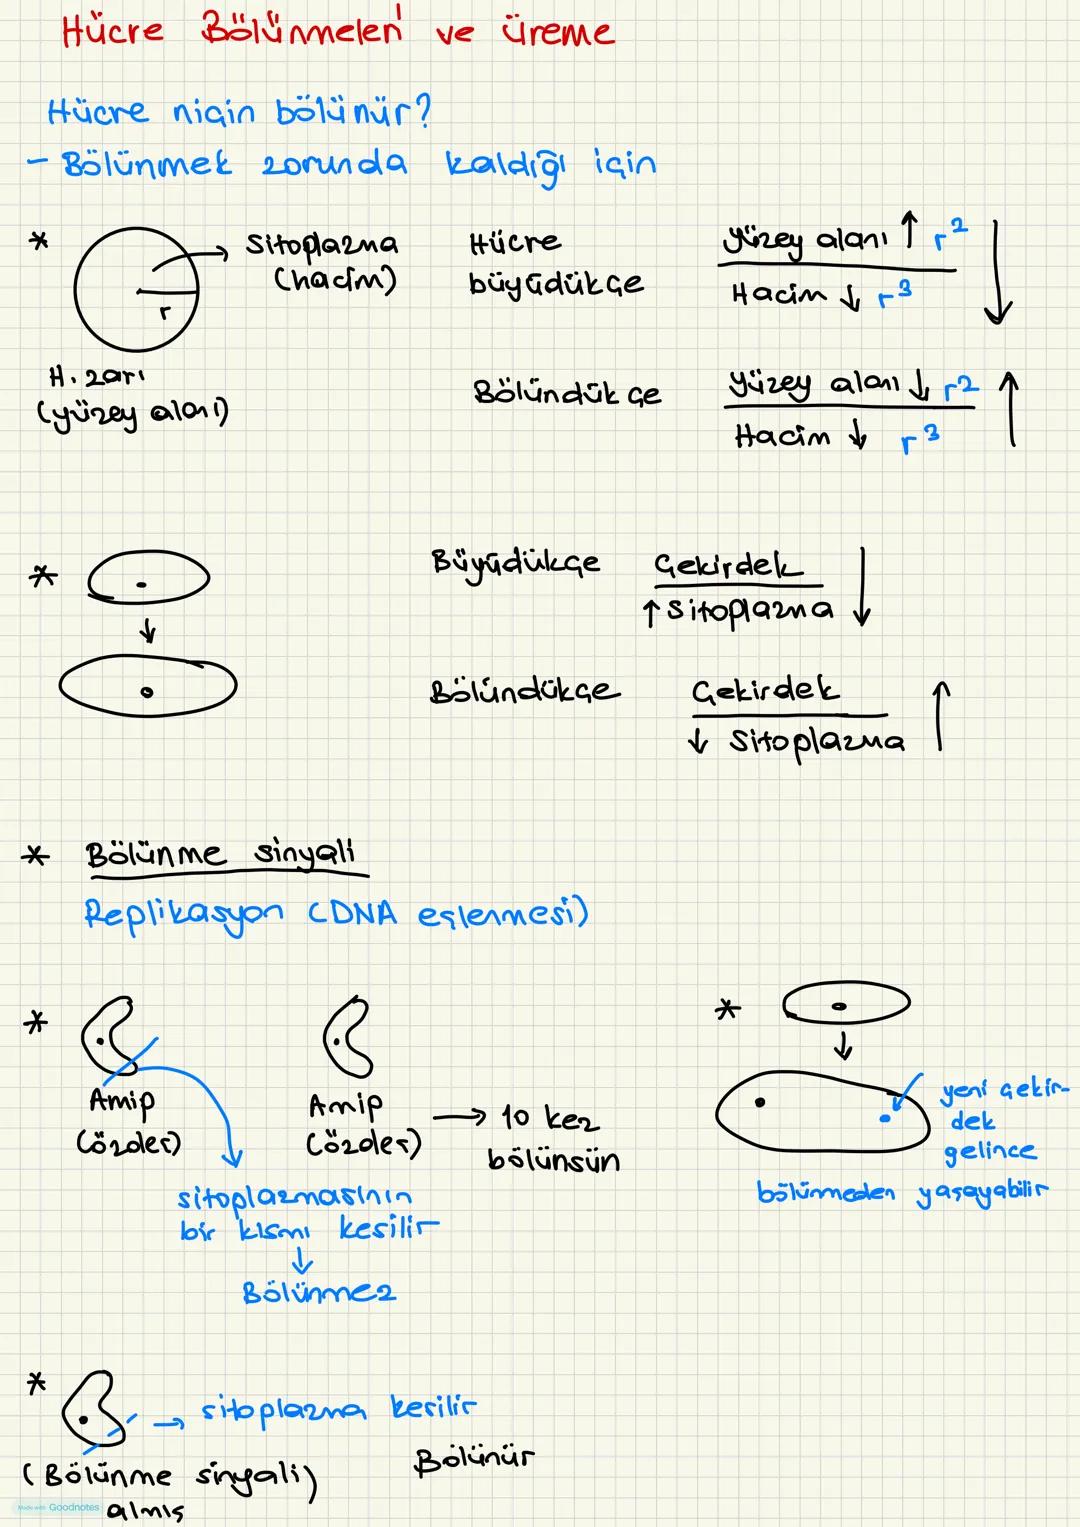 Hücre Bölünmeleri ve üreme
Hücre niçin bölünür?
- Bölünmek zorunda kaldığı için
* Sitoplazma
(hacim)
r
H. zarı
(yüzey alanı)
Hücre
büyüdükçe
Yüzey alanı ↑ r²
Hacim ↓ r³
Bölündükçe
Yüzey alanı ↓ r²
Hacim ↓ r³
*
Büyüdükçe
Çekirdek
↑ Sitoplazma
Bölündükçe
Çekirdek
↓ Sitoplazma
* Bölünme sinyali
Replikasyon (DNA eşlenmesi)
*
Amip
(özdeş)
sitoplazmasının
bir kısmı kesilir
Bölünmez
Amip
(özdeş)
→ 10 kez
bölünsün
*
yeni çekir-
dek
gelince
bölünmeden yaşayabilir
*
→ sitoplazma kesilir
(Bölünme sinyali)
almış
Bölünür
Made with Goodnotes